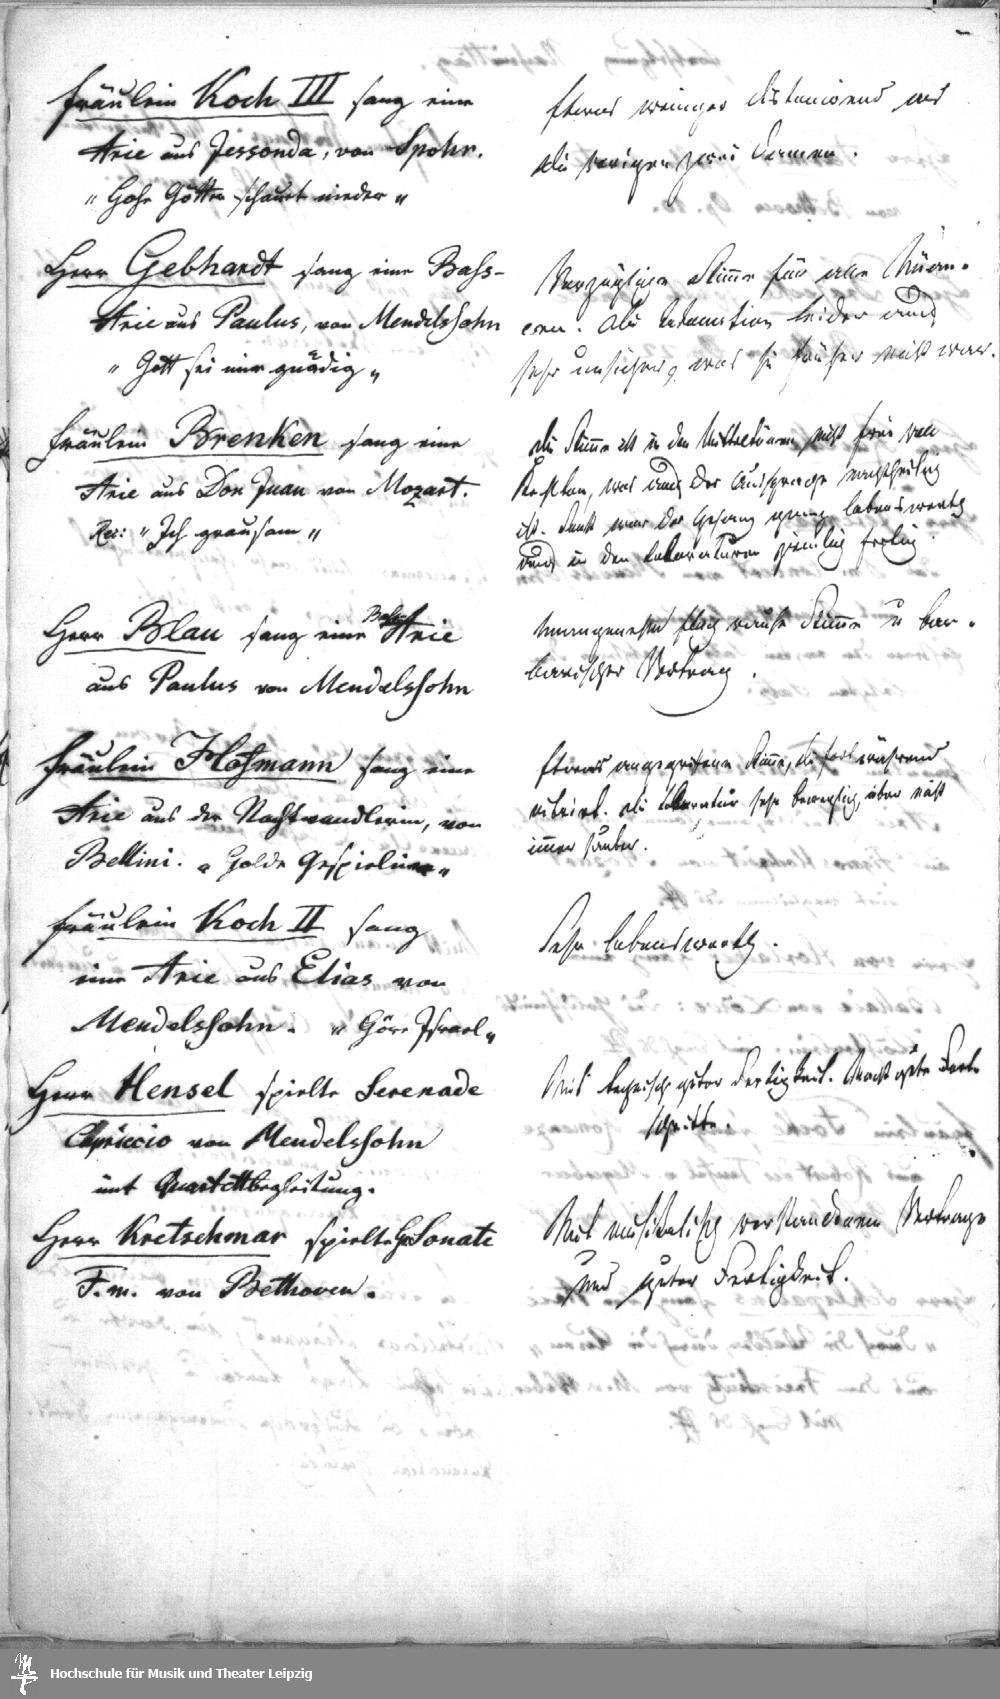 Fräulein Koch III sang eine
Arie aus Jessonda, von Spohr.
„Hohe Götter schauet nieder"
Etwas weniger distonirend als
die vorigen zwei Damen.
Herr Gebhardt sang eine Bass-
Arie aus Paulus, von Mendelssohn
„Gott sei mir gnädig"
Vorzügliche Stimme für alle
Die Intonation leider auch
sehr unsicher, was sie früher nicht war.
Fräulein Brenken sang eine
Arie aus Don Juan von Mozart.
Rec: „Ich grausam"
Die Stimme ist in den Mitteltönen nicht frei von
was auch der Aussprache nachtheilig
ist. Sonst war der Gesang ganz lobenswerth
auch in den Coloraturen ziemlich fertig.
Herr Blau sang eine Bass Arie
aus Paulus von Mendelssohn
rauhe Stimme u bar-
barischer Vortrag.
Fräulein Hofmann sang eine
Arie aus der Nachtwandlerin, von
Bellini. „Holde Gespielinen"
Etwas angegriffene Stimme, die fortwährend
vibrirt. Die Coloratur sehr beweglich, aber nicht
immer sauber.
Fräulein Koch II sang
eine Arie aus Elias von
Mendelssohn. „Höre Israel"
Sehr lobenswerth.
Herr Hensel spielte Serenade
Capriccio von Mendelssohn
mit Quartettbegleitung.
Mit technisch guter Fertigkeit. Macht gute Fort-
schritte.
Herr Kretschmar spielte Sonate
F.m. von Bethoven.
Mit musikalisch verstandenem Vortrage
und guter Fertigkeit.
Hochschule für Musik und Theater Leipzig